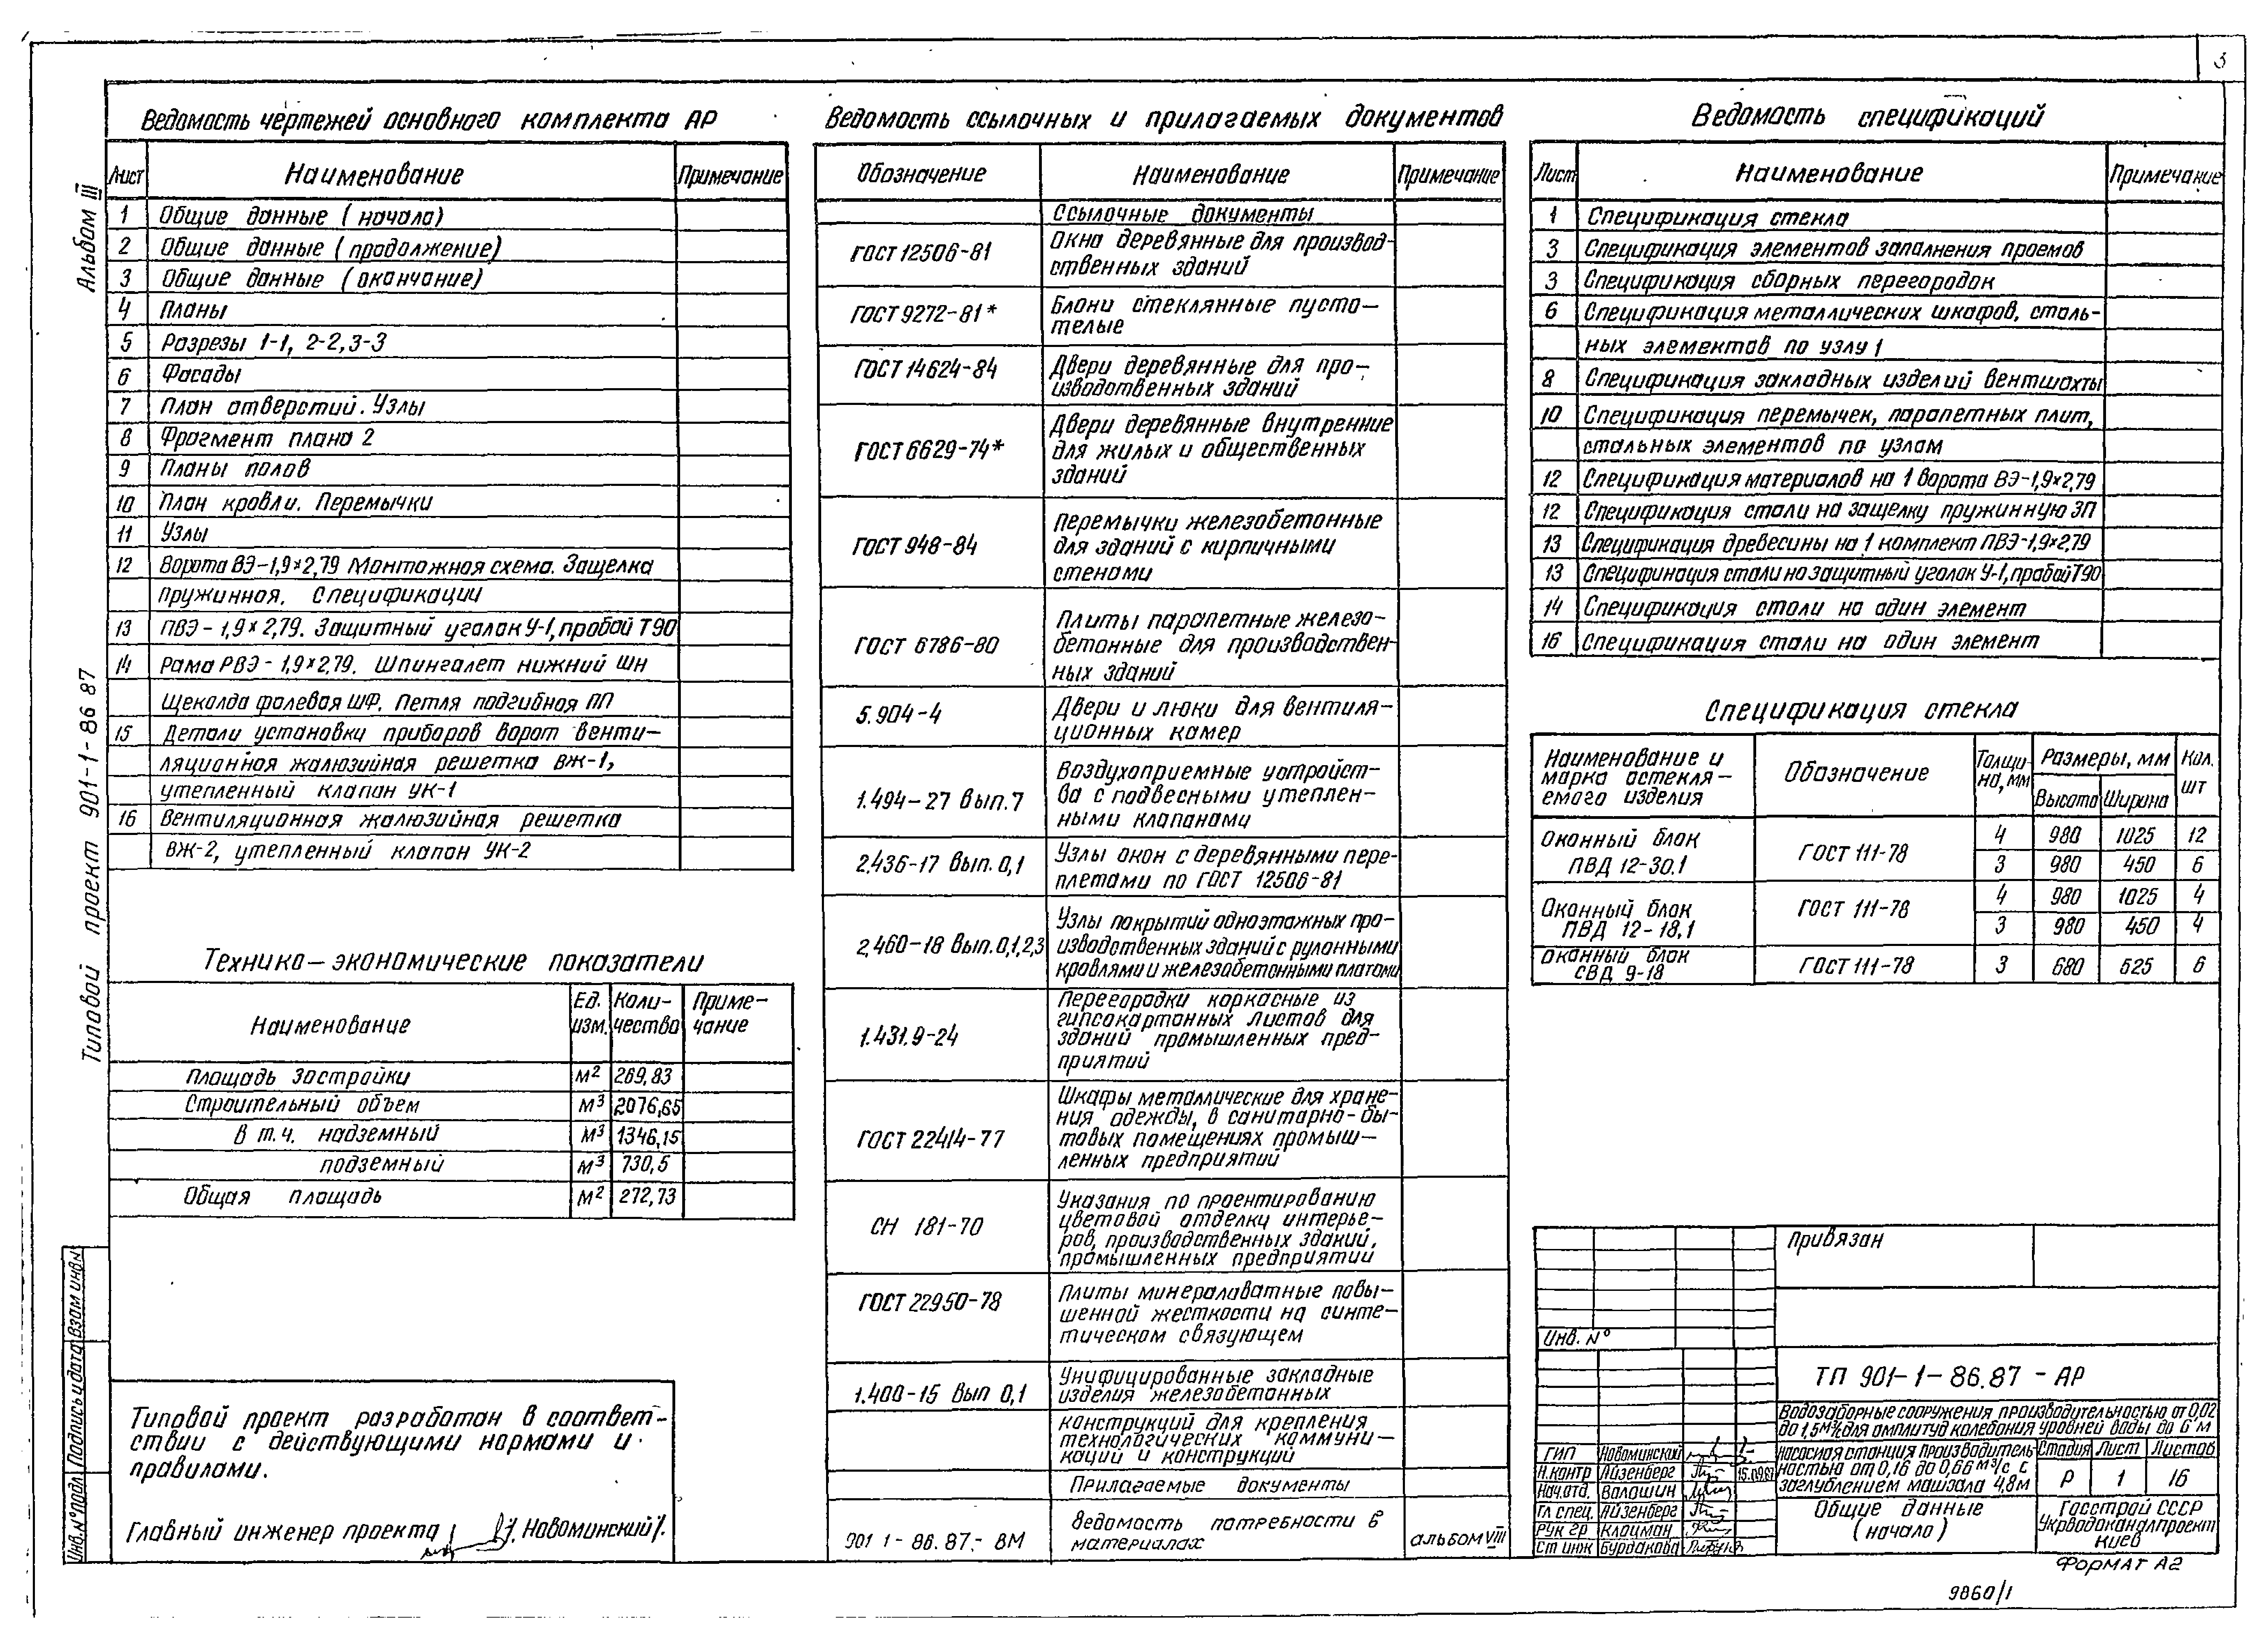 3
Альбом III
Типовой проект 901-1-86 87
Ведомость чертежей основного комплекта АР
Лист Наименование Примечание
1 Общие данные (начало)
2 Общие данные (продолжение)
3 Общие данные (окончание)
4 Планы
5 Разрезы 1-1, 2-2, 3-3
6 Фасады
7 План отверстий. Узлы
8 Фрагмент плана 2
9 Планы полов
10 План кровли. Перемычки
11 Узлы
12 Ворота ВЭ-1,9×2,79 Монтажная схема. Защелка
пружинная. Спецификации
13 ПВЭ-1,9×2,79. Защитный уголок У-1, пробой Т90
14 Рама РВЭ-1,9×2,79. Шпингалет нижний ШН
Щеколда фалевая ШФ. Петля подгибная ПП
15 Детали установки приборов ворот венти-
ляционная жалюзийная решетка ВЖ-1,
утепленный клапан УК-1
16 Вентиляционная жалюзийная решетка
ВЖ-2, утепленный клапан УК-2
Технико-экономические показатели
Наименование Ед. изм. Коли-чество Приме-чание
Площадь застройки м² 269,83
Строительный объем м³ 2076,65
в т.ч. надземный м³ 1346,15
подземный м³ 730,5
Общая площадь м² 272,73
Типовой проект разработан в соответ-
ствии с действующими нормами и
правилами.
Главный инженер проекта Новоминский
Ведомость ссылочных и прилагаемых документов
Обозначение Наименование Примечание
Ссылочные документы
ГОСТ 12506-81 Окна деревянные для производ-
ственных зданий
ГОСТ 9272-81* Блоки стеклянные пусто-
телые
ГОСТ 14624-84 Двери деревянные для про-
изводственных зданий
ГОСТ 6629-74* Двери деревянные внутренние
для жилых и общественных
зданий
ГОСТ 948-84 Перемычки железобетонные
для зданий с кирпичными
стенами
ГОСТ 6786-80 Плиты парапетные железо-
бетонные для производствен-
ных зданий
5.904-4 Двери и люки для вентиля-
ционных камер
1.494-27 Вып. 7 Воздухоприемные устройст-
ва с подвесными утеплен-
ными клапанами
2.436-17 Вып. 0,1 Узлы окон с деревянными пере-
плетами по ГОСТ 12506-81
2.460-18 Вып. 0,1,2,3 Узлы покрытий одноэтажных про-
изводственных зданий с рулонными
кровлями и железобетонными плитами
1.431.9-24 Перегородки каркасные из
гипсокартонных листов для
зданий промышленных пред-
приятий
ГОСТ 22414-77 Шкафы металлические для хране-
ния одежды, в санитарно-бы-
товых помещениях промыш-
ленных предприятий
СН 181-70 Указания по проектированию
цветовой отделки интерье-
ров, производственных зданий,
промышленных предприятий
ГОСТ 22950-78 Плиты минераловатные повы-
шенной жесткости на синте-
тическом связующем
1.400-15 Вып 0,1 Унифицированные закладные
изделия железобетонных
конструкций для крепления
технологических коммуни-
каций и конструкций
Прилагаемые документы
901 1-86.87.-ВМ Ведомость потребности в
материалах альбом VIII
Ведомость спецификаций
Лист Наименование Примечание
1 Спецификация стекла
3 Спецификация элементов заполнения проемов
3 Спецификация сборных перегородок
6 Спецификация металлических шкафов, сталь-
ных элементов по узлу 1
8 Спецификация закладных изделий вентшахты
10 Спецификация перемычек, парапетных плит,
стальных элементов по узлам
12 Спецификация материалов на 1 ворота ВЭ-1,9×2,79
12 Спецификация стали на защелку пружинную ЗП
13 Спецификация древесины на 1 комплект ПВЭ-1,9×2,79
13 Спецификация стали на защитный уголок У-1, пробой Т90
14 Спецификация стали на один элемент
16 Спецификация стали на один элемент
Спецификация стекла
Наименование и марка остекля-емого изделия Обозначение Толщи-на, мм Размеры, мм Кол. шт
Высота Ширина
Оконный блок ПВД 12-30.1 ГОСТ 111-78 4 980 1025 12
3 980 450 6
Оконный блок ПВД 12-18.1 ГОСТ 111-78 4 980 1025 4
3 980 450 4
Оконный блок СВД 9-18 ГОСТ 111-78 3 680 625 6
Привязан
Инв. №
ТП 901-1-86.87 -АР
Водозаборные сооружения производительностью от 0,02
до 1,5 м³/с для амплитуд колебания уровней воды до 6 м
ГИП Новоминский
Н.контр Айзенберг 15.09.87
Нач.отд. Волошин
Гл спец. Айзенберг
Рук гр Клоцман
Ст инж Бурдакова
Насосная станция производитель-
ностью от 0,16 до 0,66 м³/с с
заглублением машзала 4,8 м
Стадия Лист Листов
Р 1 16
Общие данные
(начало)
Госстрой СССР
Укрводоканалпроект
Киев
Формат А2
9860/1
Инв.№ подл. Подпись и дата Взам инв.№